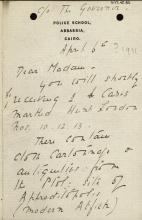 c/o The Governor
POLICE SCHOOL,
ABBASSIA,
CAIRO.
April 6th
Dear Madam,
You will shortly
receiving 2 cases
marked Hunt London
Nos. 10. 12. 13
These contain
clon Cartonnage &
antiquities from
the Ptol. Site of
Aphroditopolis
(modern Atfieh)